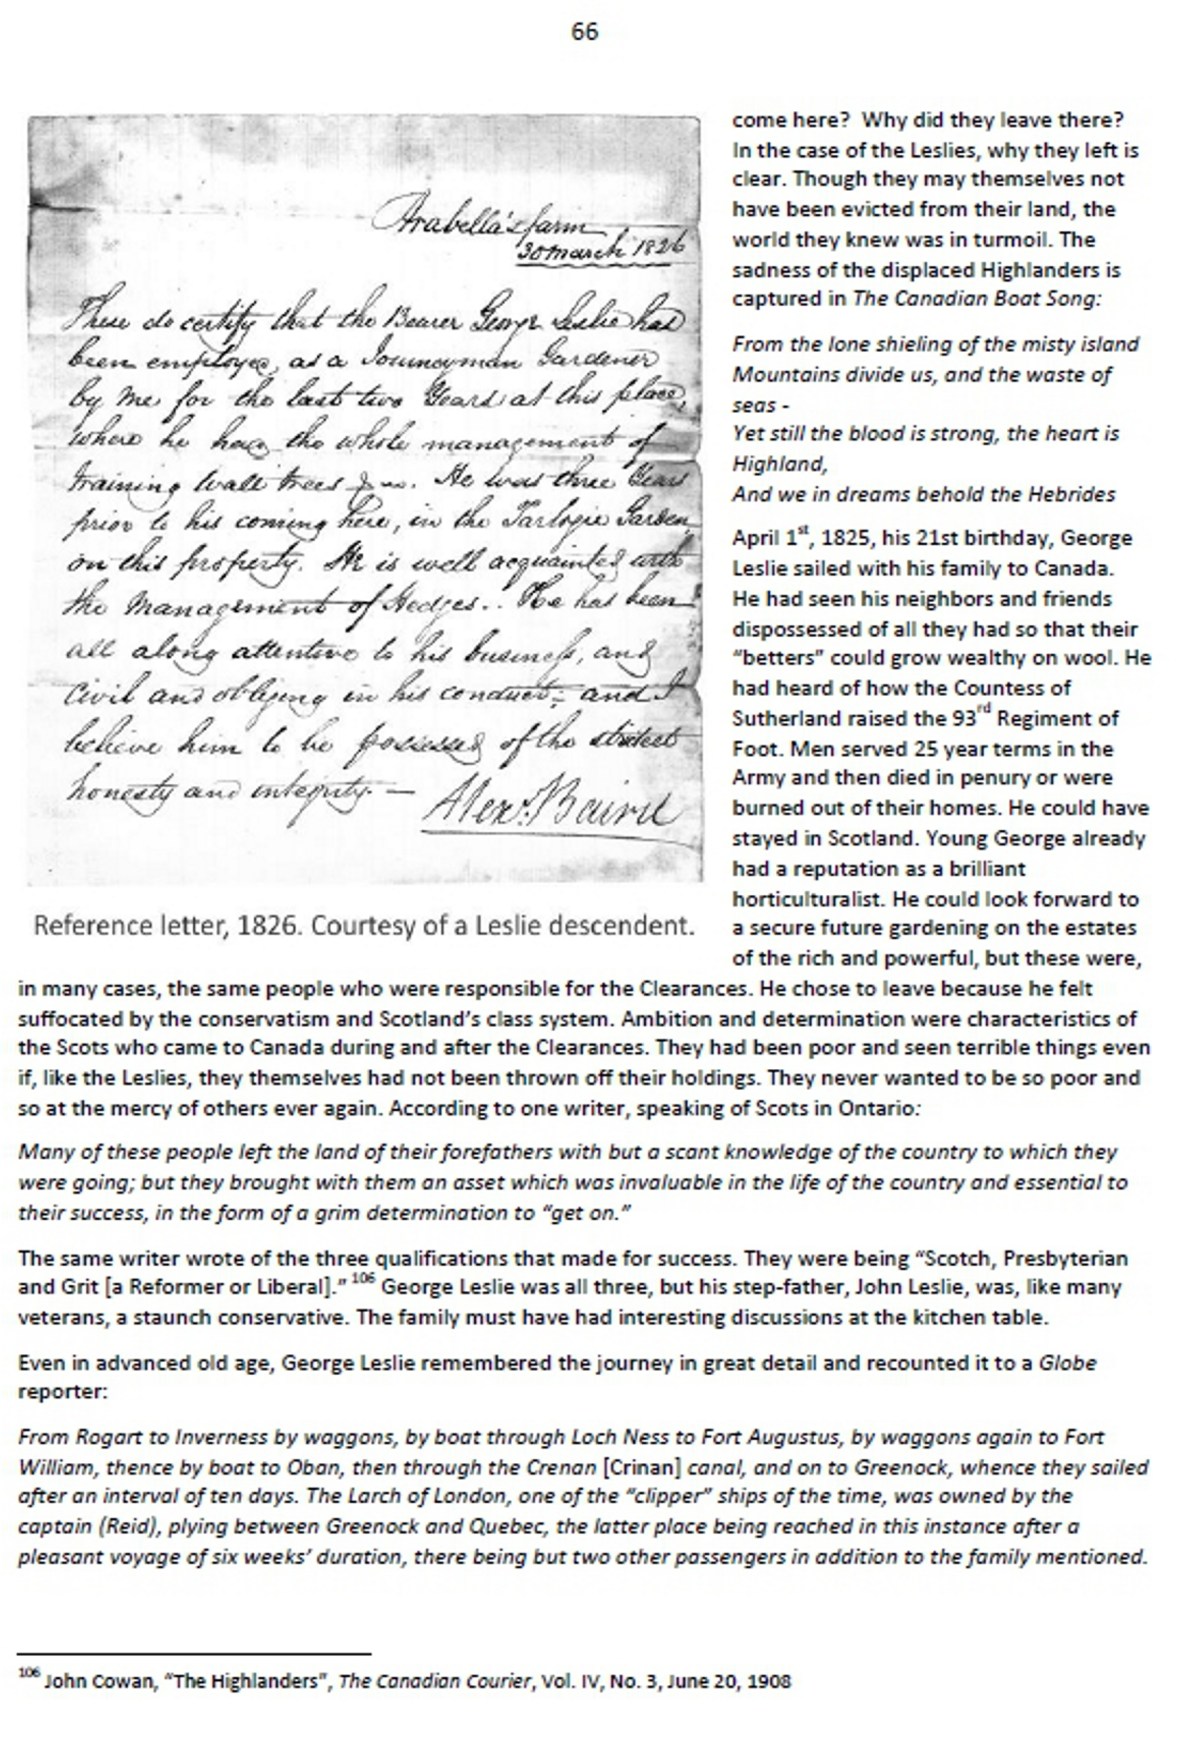 66
Arabella's farm
30 march 1826
These do certify that the Bearer George Leslie has
been employed, as a Journeyman Gardener
by me for the last two Years at this place,
where he has the whole management of
training wall trees &c. He was three Years
prior to his coming here, in the Tarlogie Garden
on this property. He is well acquainted with
the Management of Hedges.. He has been
all along attentive to his business, and
Civil and obliging in his conduct; and I
believe him to be possessed of the strictest
honesty and integrity. —
Alexr. Baird
Reference letter, 1826. Courtesy of a Leslie descendent.
come here? Why did they leave there?
In the case of the Leslies, why they left is
clear. Though they may themselves not
have been evicted from their land, the
world they knew was in turmoil. The
sadness of the displaced Highlanders is
captured in The Canadian Boat Song:
From the lone shieling of the misty island
Mountains divide us, and the waste of
seas -
Yet still the blood is strong, the heart is
Highland,
And we in dreams behold the Hebrides
April 1st, 1825, his 21st birthday, George
Leslie sailed with his family to Canada.
He had seen his neighbors and friends
dispossessed of all they had so that their
“betters” could grow wealthy on wool. He
had heard of how the Countess of
Sutherland raised the 93rd Regiment of
Foot. Men served 25 year terms in the
Army and then died in penury or were
burned out of their homes. He could have
stayed in Scotland. Young George already
had a reputation as a brilliant
horticulturalist. He could look forward to
a secure future gardening on the estates
of the rich and powerful, but these were,
in many cases, the same people who were responsible for the Clearances. He chose to leave because he felt
suffocated by the conservatism and Scotland’s class system. Ambition and determination were characteristics of
the Scots who came to Canada during and after the Clearances. They had been poor and seen terrible things even
if, like the Leslies, they themselves had not been thrown off their holdings. They never wanted to be so poor and
so at the mercy of others ever again. According to one writer, speaking of Scots in Ontario:
Many of these people left the land of their forefathers with but a scant knowledge of the country to which they
were going; but they brought with them an asset which was invaluable in the life of the country and essential to
their success, in the form of a grim determination to “get on.”
The same writer wrote of the three qualifications that made for success. They were being “Scotch, Presbyterian
and Grit [a Reformer or Liberal].” 106 George Leslie was all three, but his step-father, John Leslie, was, like many
veterans, a staunch conservative. The family must have had interesting discussions at the kitchen table.
Even in advanced old age, George Leslie remembered the journey in great detail and recounted it to a Globe
reporter:
From Rogart to Inverness by waggons, by boat through Loch Ness to Fort Augustus, by waggons again to Fort
William, thence by boat to Oban, then through the Crenan [Crinan] canal, and on to Greenock, whence they sailed
after an interval of ten days. The Larch of London, one of the “clipper” ships of the time, was owned by the
captain (Reid), plying between Greenock and Quebec, the latter place being reached in this instance after a
pleasant voyage of six weeks’ duration, there being but two other passengers in addition to the family mentioned.
106 John Cowan, “The Highlanders”, The Canadian Courier, Vol. IV, No. 3, June 20, 1908